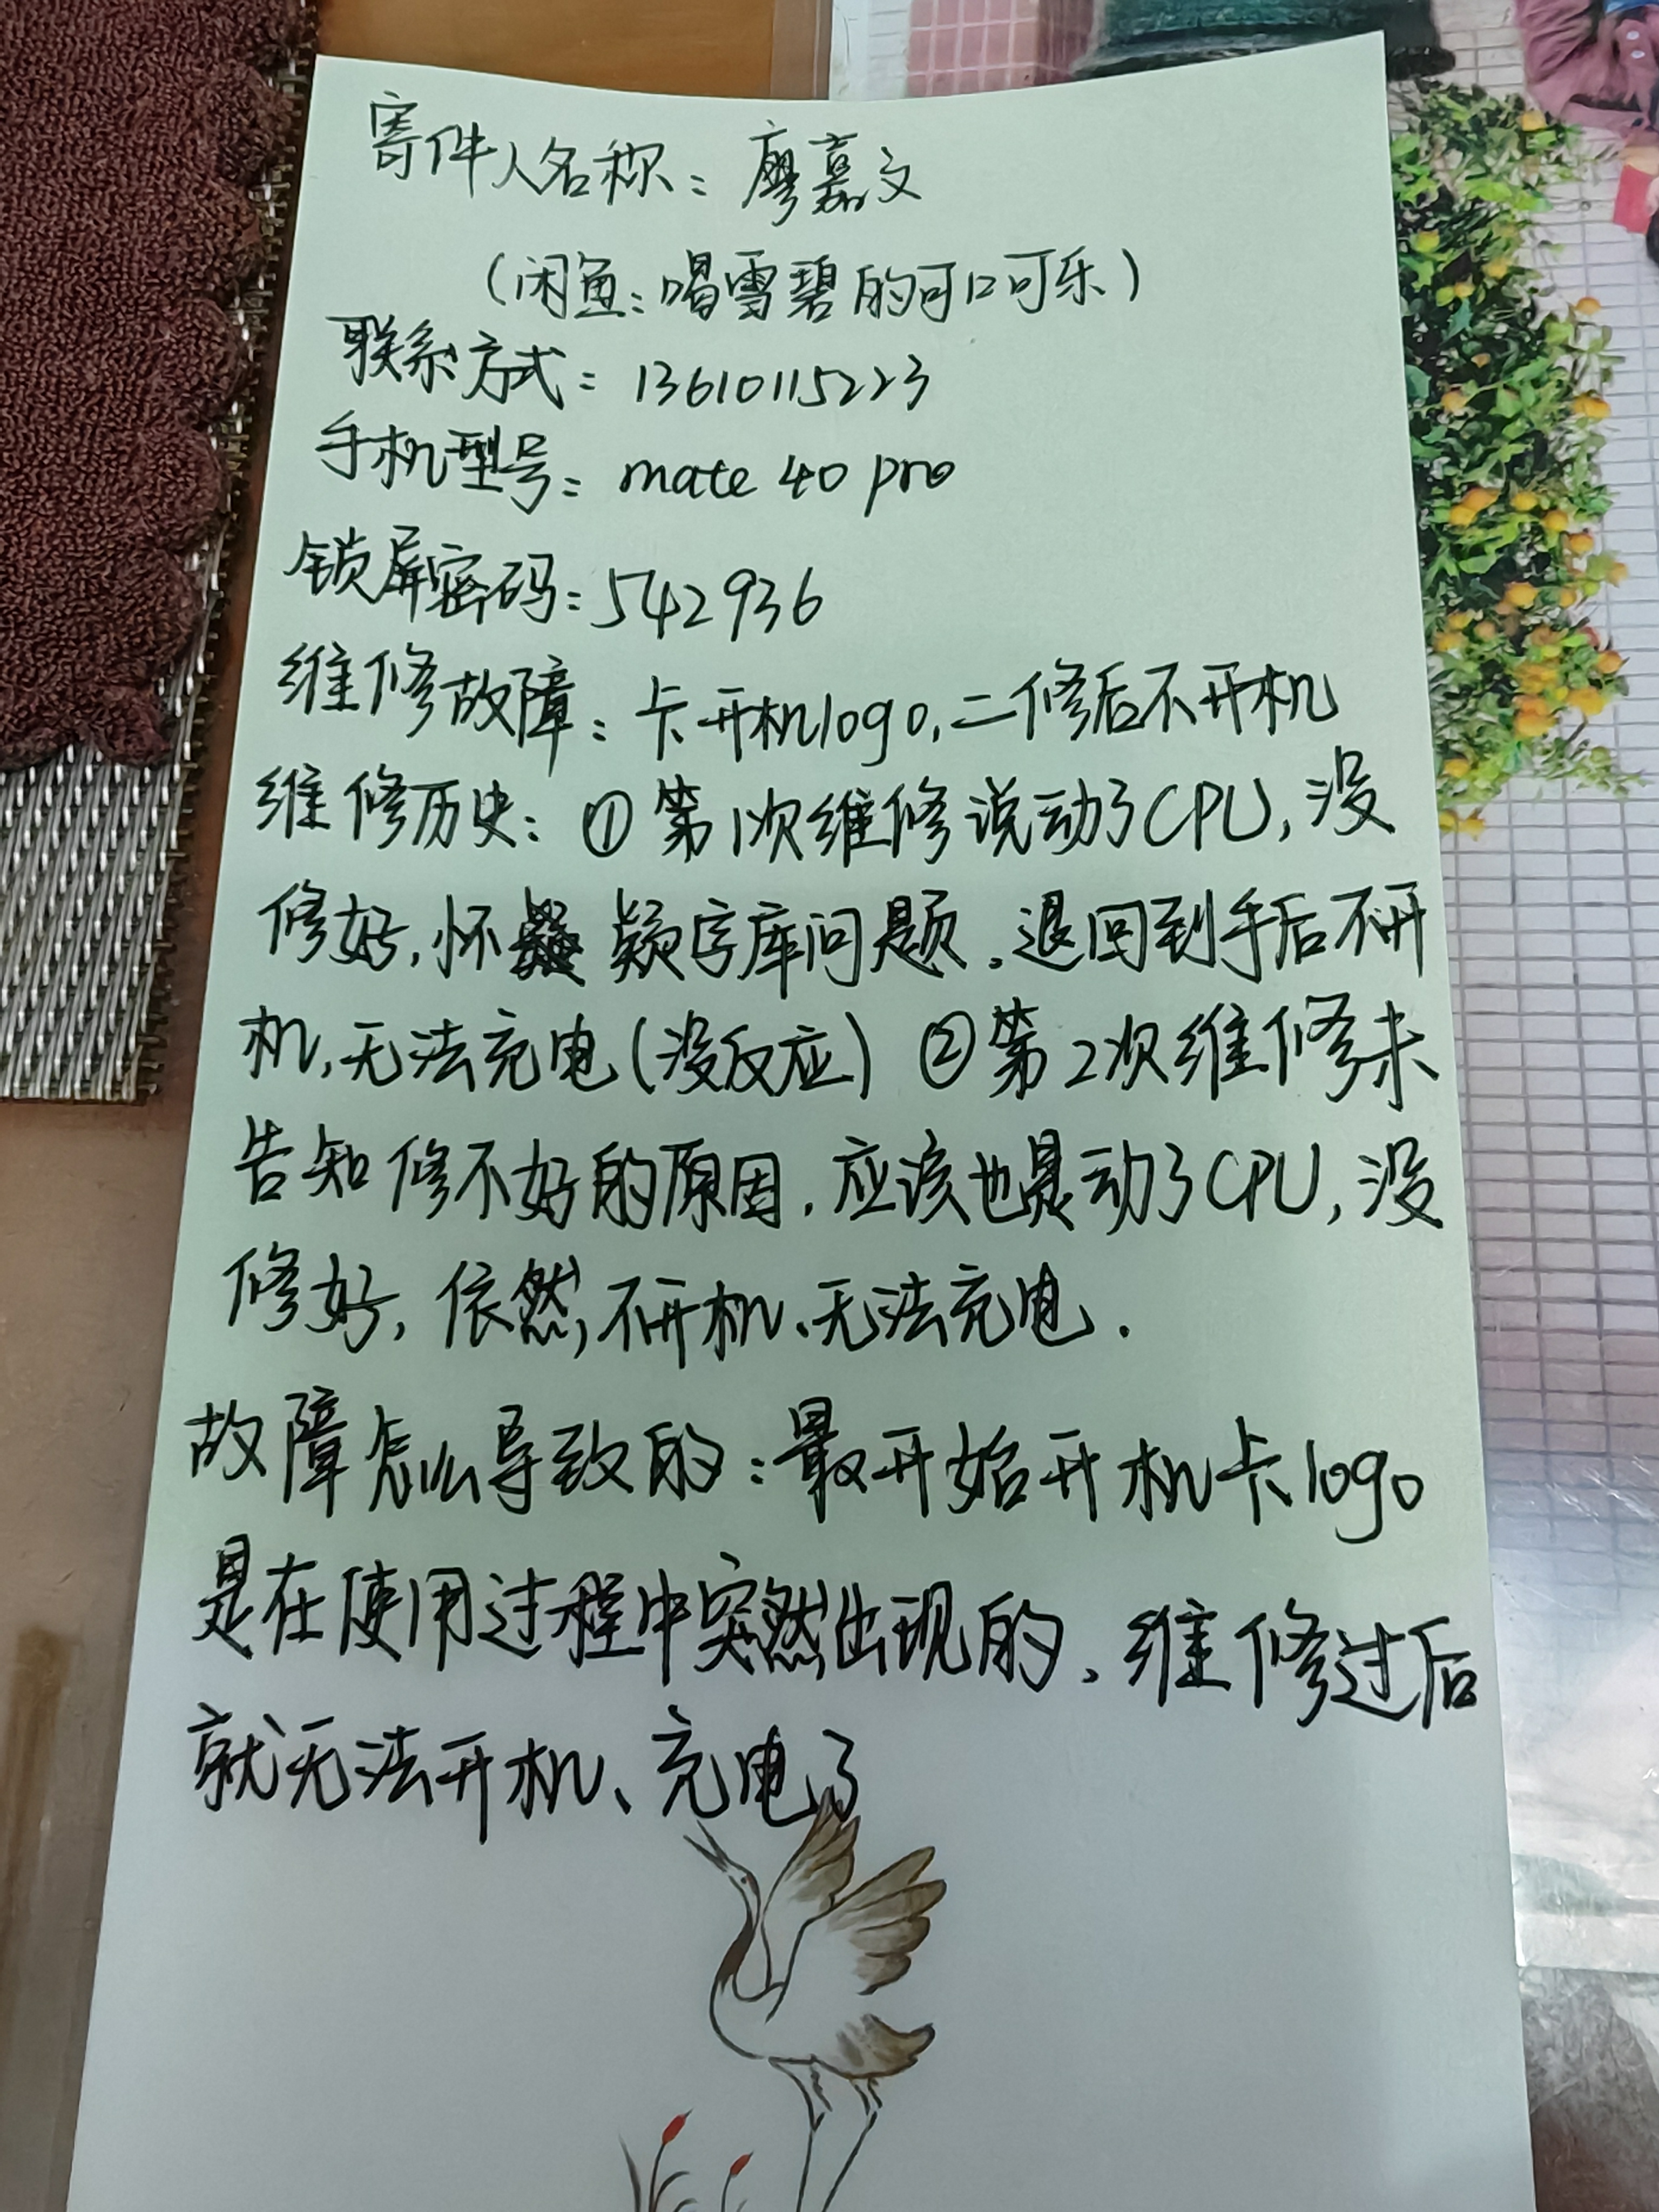 寄件人名称：廖嘉文
（闲鱼：喝雪碧的可口可乐）
联系方式：13610115223
手机型号：mate 40 pro
锁屏密码：542936
维修故障：卡开机logo，二修后不开机
维修历史：①第1次维修说动了CPU，没
修好，怀疑字库问题。退回到手后不开
机，无法充电（没反应）②第2次维修未
告知修不好的原因，应该也是动了CPU，没
修好，依然不开机、无法充电.
故障怎么导致的：最开始开机卡logo
是在使用过程中突然出现的、维修过后
就无法开机、充电了